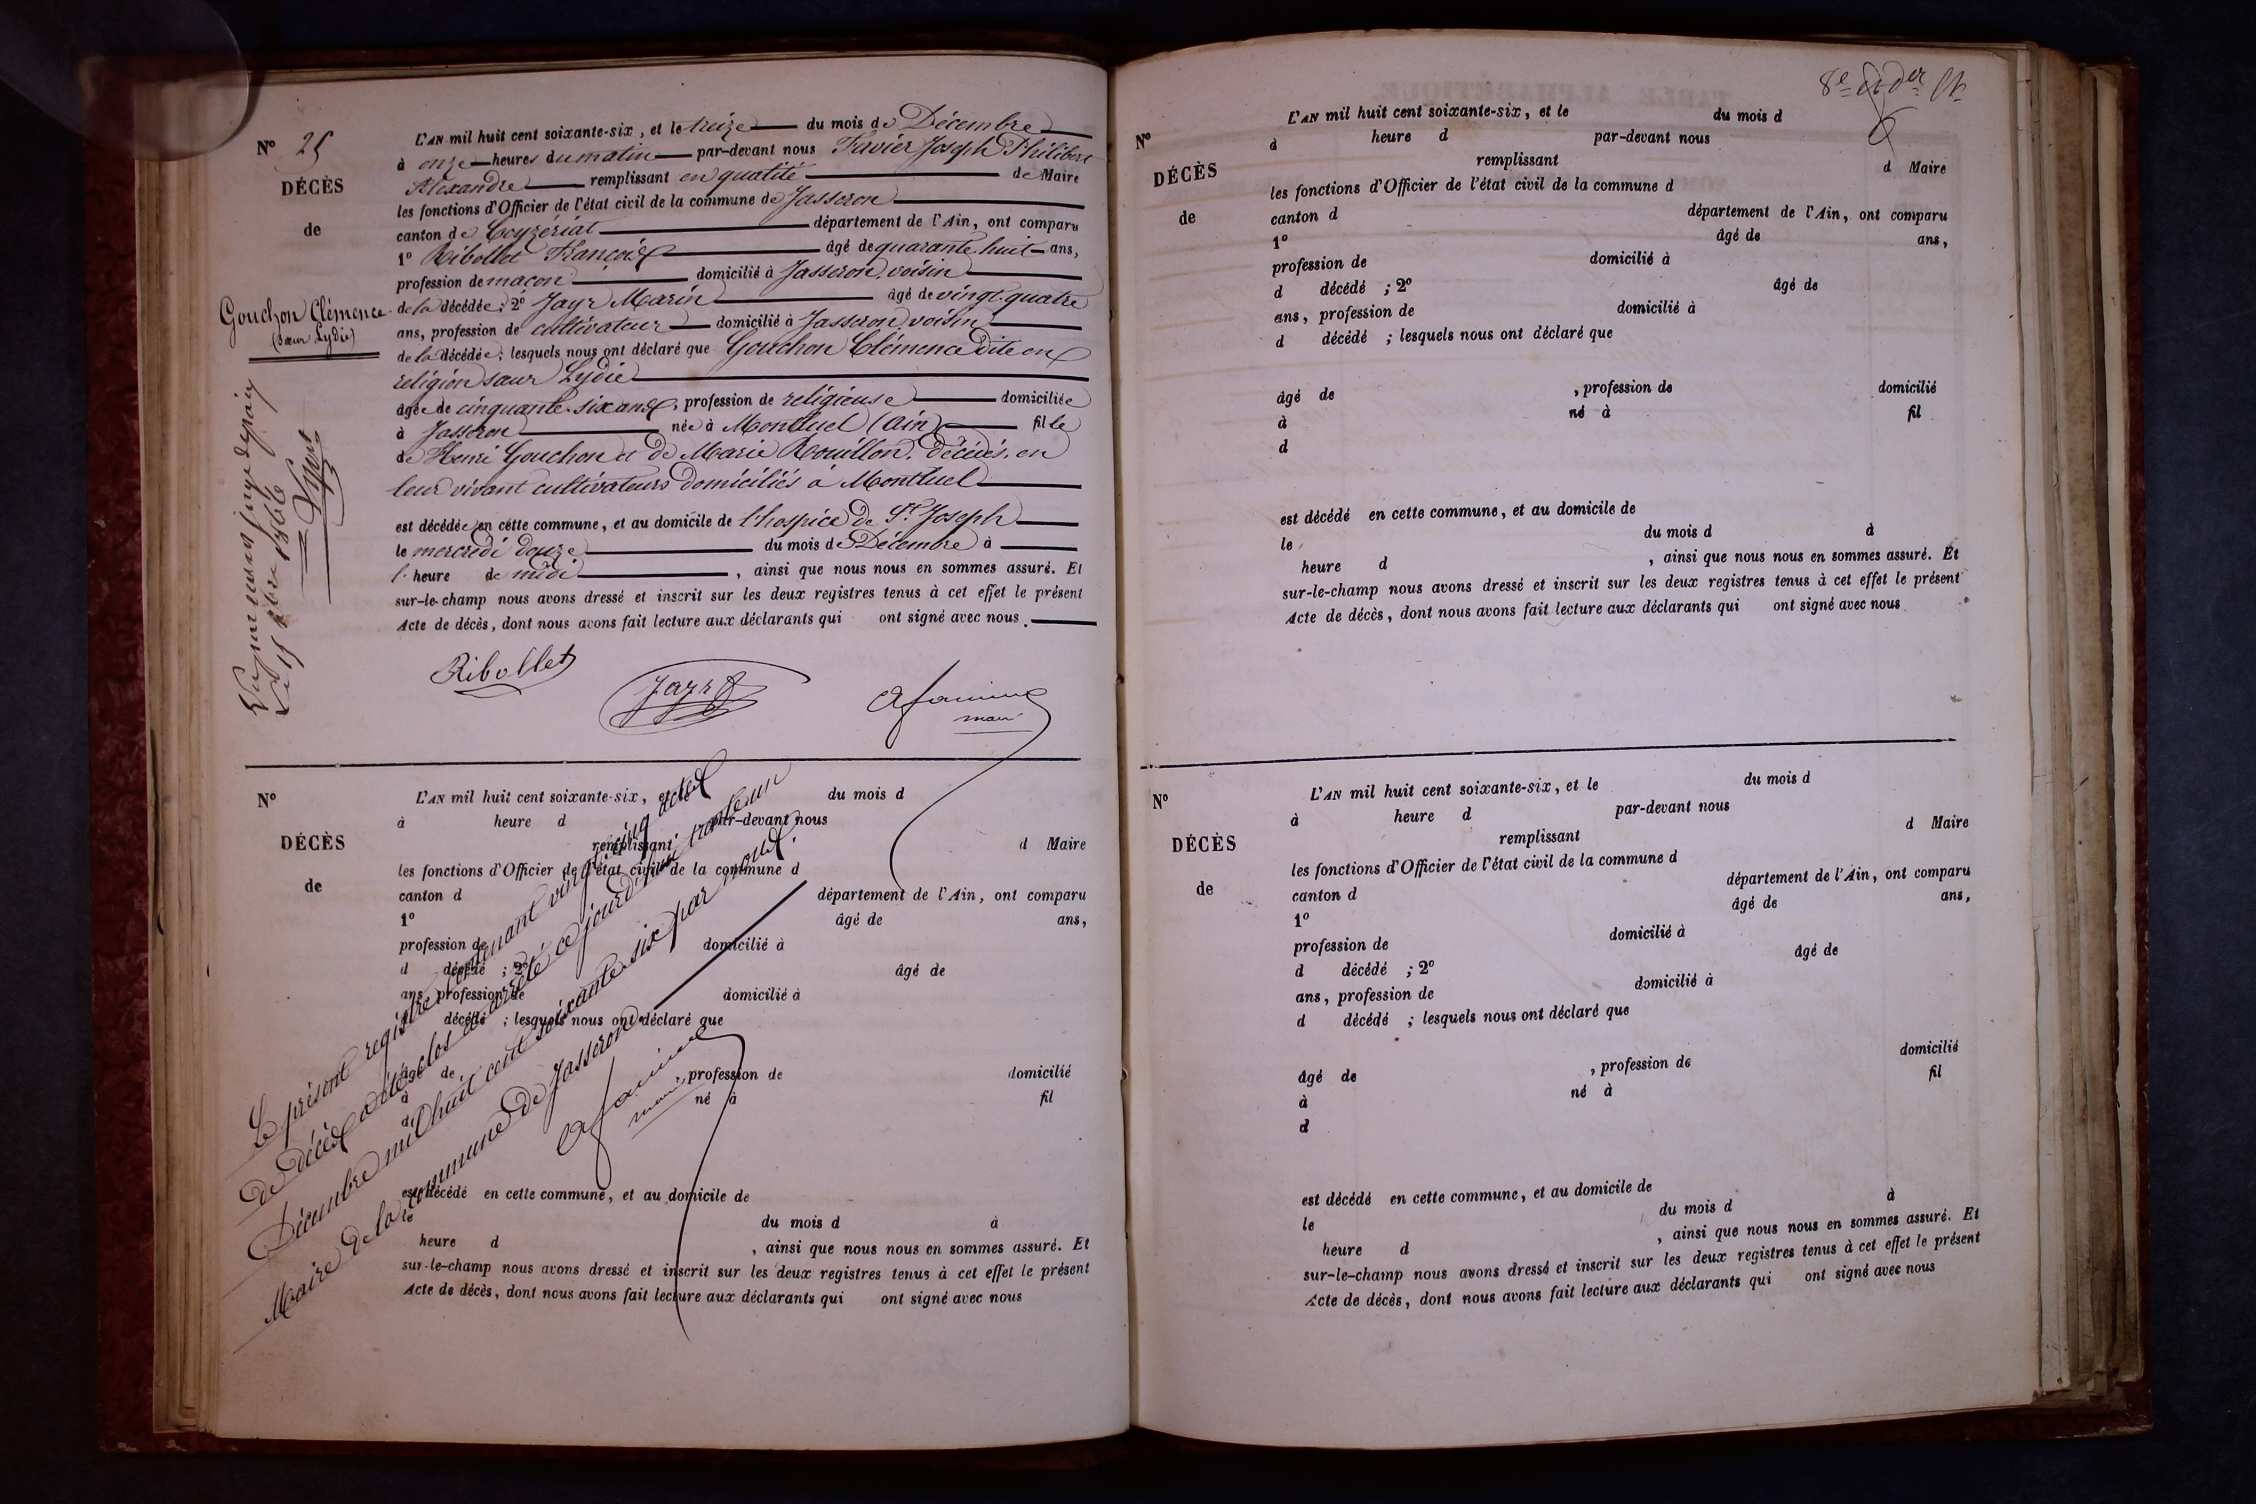 N° 25
DÉCÈS
de
Gouchon Clémence
(sœur Lydie)
L'AN mil huit cent soixante-six, et le treize du mois de Décembre
à onze heures du matin par-devant nous Favier Joseph Philibert
Alexandre remplissant en qualité de Maire
les fonctions d'Officier de l'état civil de la commune de Jasseron
canton de Ceyzériat département de l'Ain, ont comparu
1° Ribollet François âgé de quarante-huit ans,
profession de maçon domicilié à Jasseron, voisin
de la décédée; 2° Jayr Marin âgé de vingt-quatre
ans, profession de cultivateur domicilié à Jasseron, voisin
de la décédée; lesquels nous ont déclaré que Gouchon Clémence dite en
religion sœur Lydie
âgée de cinquante-six ans, profession de religieuse domiciliée
à Jasseron née à Montluel (Ain) fille
de Henri Gouchon et de Marie Rouillon, décédés, en
leur vivant cultivateurs domiciliés à Montluel
est décédée en cette commune, et au domicile de l'hospice de St. Joseph
le mercredi douze du mois de Décembre à
l'heure de midi, ainsi que nous nous en sommes assuré. Et
sur-le-champ nous avons dressé et inscrit sur les deux registres tenus à cet effet le présent
Acte de décès, dont nous avons fait lecture aux déclarants qui ont signé avec nous.
Ribollet
Jayr
maire
N°
DÉCÈS
de
L'AN mil huit cent soixante-six, et le du mois d
à heure d par-devant nous
remplissant d Maire
les fonctions d'Officier de l'état civil de la commune d
canton d département de l'Ain, ont comparu
1° âgé de ans,
profession de domicilié à
d décédé ; 2° âgé de
ans, profession de domicilié à
d décédé ; lesquels nous ont déclaré que
âgé de , profession de domicilié
à né à fil
d
est décédé en cette commune, et au domicile de
le du mois d à
heure d , ainsi que nous nous en sommes assuré. Et
sur-le-champ nous avons dressé et inscrit sur les deux registres tenus à cet effet le présent
Acte de décès, dont nous avons fait lecture aux déclarants qui ont signé avec nous
Le présent registre contenant vingt-cinq actes
de décès a été clos et arrêté ce jourd'hui trente-un
Décembre mil huit cent soixante-six par nous,
Maire de la commune de Jasseron.
maire
N°
DÉCÈS
de
L'AN mil huit cent soixante-six, et le du mois d
à heure d par-devant nous
remplissant d Maire
les fonctions d'Officier de l'état civil de la commune d
canton d département de l'Ain, ont comparu
1° âgé de ans,
profession de domicilié à
d décédé ; 2° âgé de
ans, profession de domicilié à
d décédé ; lesquels nous ont déclaré que
âgé de , profession de domicilié
à né à fil
d
est décédé en cette commune, et au domicile de
le du mois d à
heure d , ainsi que nous nous en sommes assuré. Et
sur-le-champ nous avons dressé et inscrit sur les deux registres tenus à cet effet le présent
Acte de décès, dont nous avons fait lecture aux déclarants qui ont signé avec nous
N°
DÉCÈS
de
L'AN mil huit cent soixante-six, et le du mois d
à heure d par-devant nous
remplissant d Maire
les fonctions d'Officier de l'état civil de la commune d
canton d département de l'Ain, ont comparu
1° âgé de ans,
profession de domicilié à
d décédé ; 2° âgé de
ans, profession de domicilié à
d décédé ; lesquels nous ont déclaré que
âgé de , profession de domicilié
à né à fil
d
est décédé en cette commune, et au domicile de
le du mois d à
heure d , ainsi que nous nous en sommes assuré. Et
sur-le-champ nous avons dressé et inscrit sur les deux registres tenus à cet effet le présent
Acte de décès, dont nous avons fait lecture aux déclarants qui ont signé avec nous